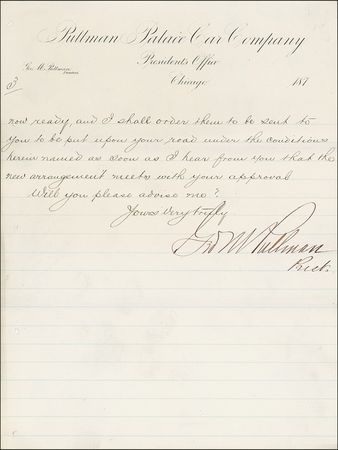 Pullman Palace Car Company
Presidents Office
Geo. M. Pullman
President
Chicago 187
3
now ready, and I shall order them to be sent to
you to be put upon your road under the conditions
herein named as soon as I hear from you that the
new arrangement meets with your approval
Will you please advise me?
Yours Very truly
Geo M Pullman
Prest.